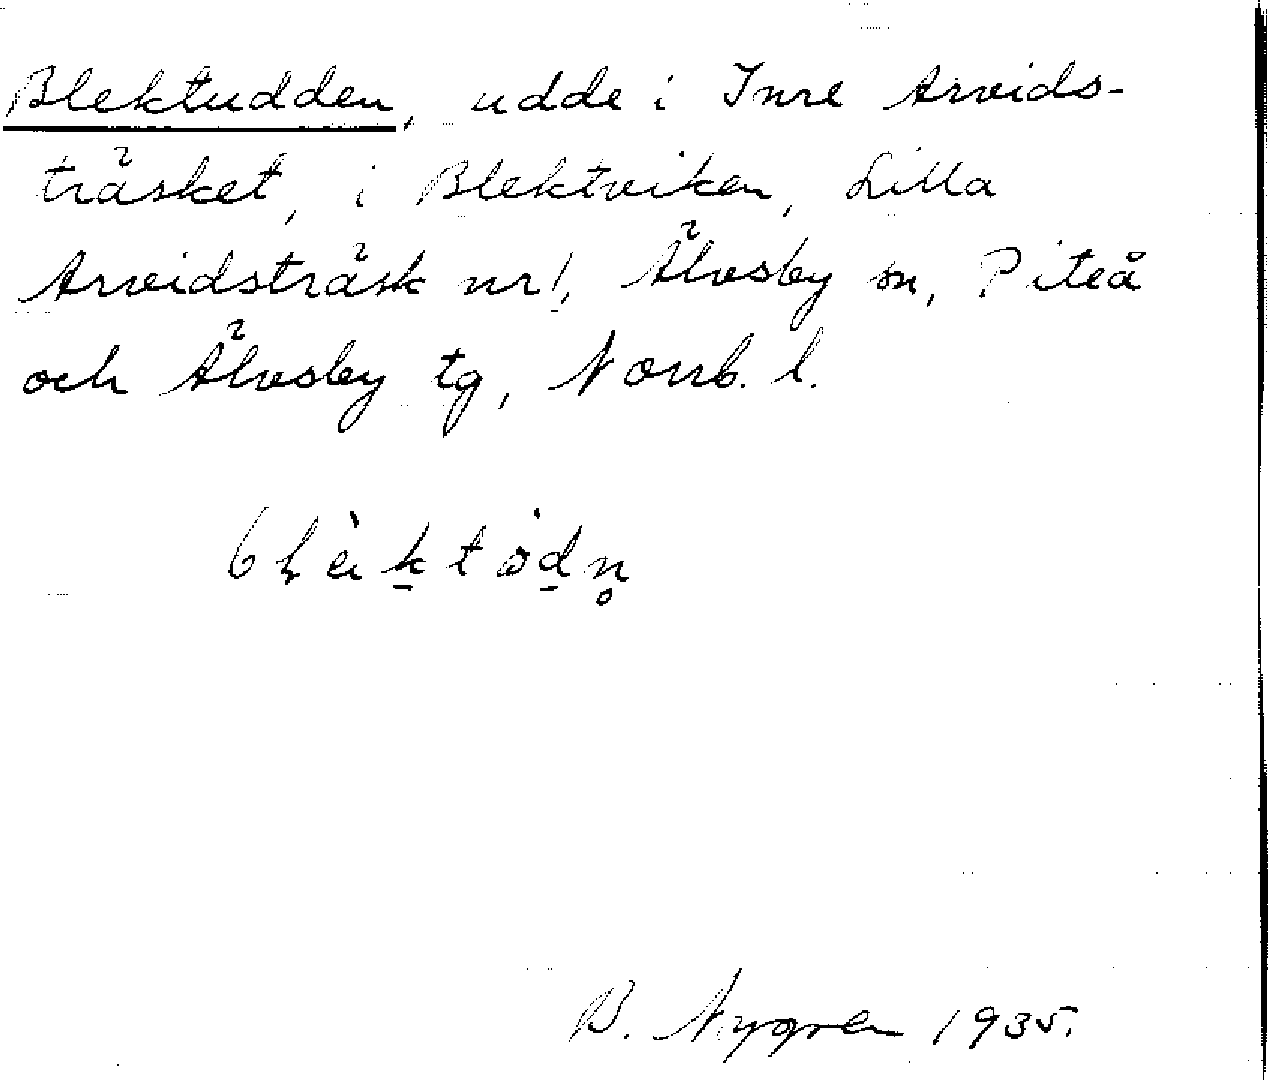 Blektudden, udde i Inre Arvids-
träsket, i Blektviken, Lilla
Arvidsträsk nr 1, Älvsby sn, Piteå
och Älvsby tg, Norrb. l.
B. Nygren 1935.